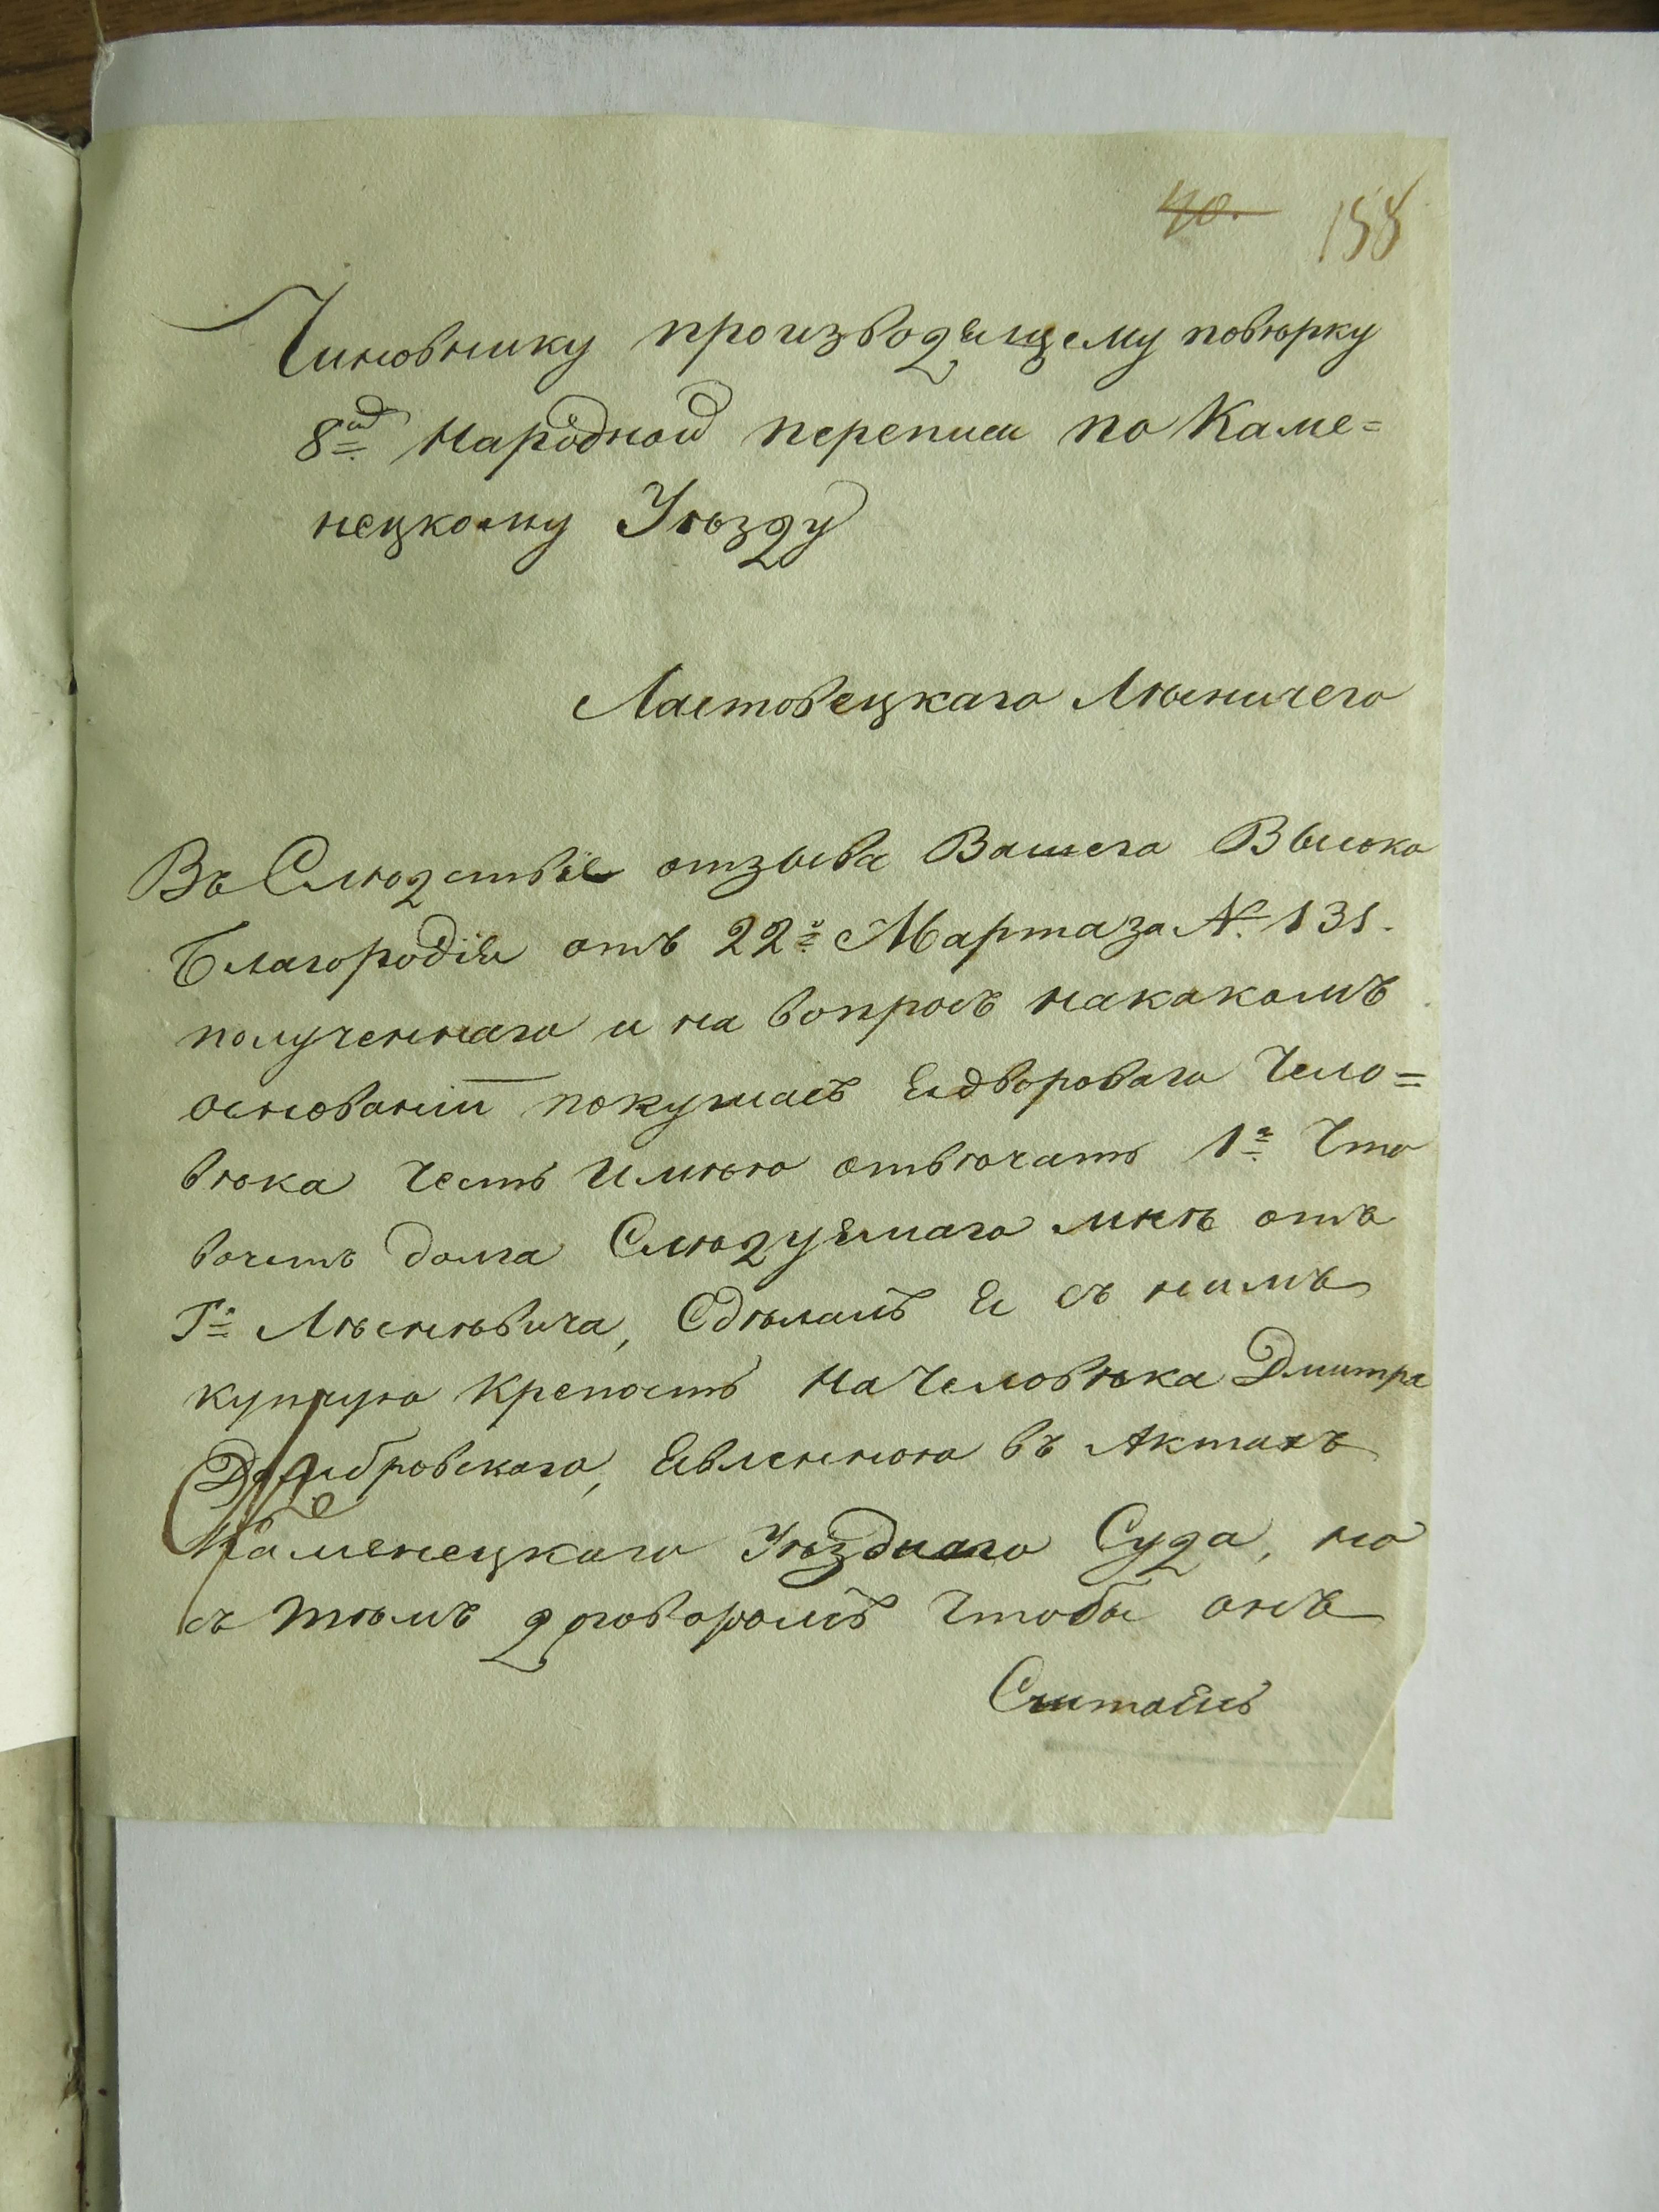 40. 158
Чиновнику производящему повѣрку
8ой Народной переписи по Каме=
нецкому Уѣзду
Ластовецкаго Лѣсничего
Въ Слѣдствіе отзыва Вашего Высоко
Благородія отъ 22го Марта за № 131.
полученнаго и на вопросъ накакомъ
основаніи покупалъ Я двороваго Чело=
вѣка честь Имѣю отвѣчать 1е Что
вочетъ долга Слѣдуямаго мнѣ отъ
Гна Лѣсневича, Сдѣлалъ Я съ нимъ
купчую Крепость На Человѣка Дмитра
Домбровскаго, Явленною въ Актахъ
Каменецкаго Уѣзднаго Суда, но
съ тѣмъ договоромъ Чтобы онъ
Считался